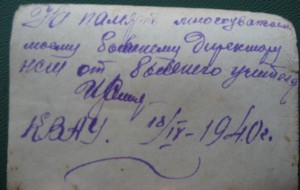 На память многоуважаем
моему бывшему Директору
НСШ от бывшего учителя
КВЖУ. 18/IX-1940г.